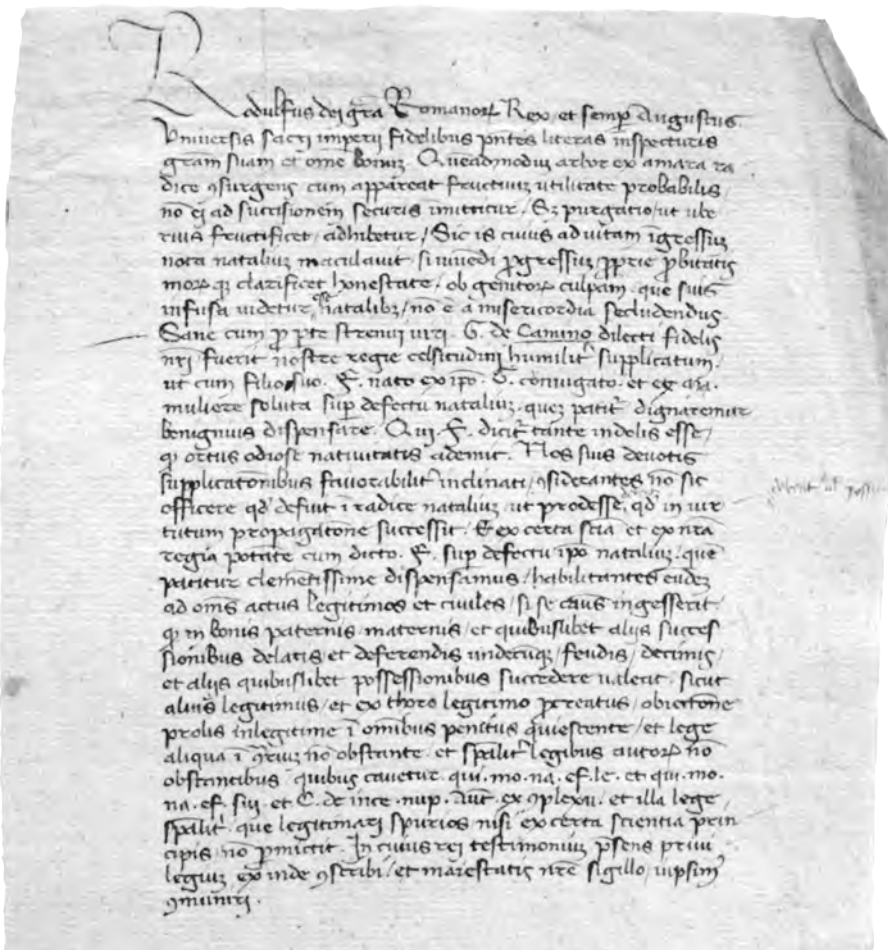 Rodulfus dei gra Romanorꝝ Rex, et semꝑ Augustus
Vniversis sacri imperii fidelibus pntes literas inspecturis
gram suam et ome bonuz. Queadmoduz arbor ex amara ra
dice ꝯsurgens cum appareat fructuuz utilitate probabilis,
no ei ad succisionem securis imittitur, Sz purgatio, ut ube
rius fructificet, adhibetur, Sic is cuius ad vitam igressuz
nota nataliuz maculavit, si vivendi ꝓgressuz, ꝓprie ꝓbitatis
morꝝ qꝫ clarificet honestate, ob genitorꝝ culpam, que suis
infusa videtur natalibz, no e a misericordia secludendus.
Sane cum ꝓ pte strenui viri. G. de Camino dilecti fidelis
nri, fuerit nostre regie celsitudini humilit supplicatum.
ut cum filio suo. F. nato ex ipo. G. coniugato. et ex qa.
muliere soluta suꝑ defectu nataliuz. quez patit dignaremur
benignius dispensare. Qui. F. dicit tante indolis esse,
ꝙ ortus odiose nativitatis ademit. Nos suis devotis
supplicatonibus favorabilit inclinati, ꝯsiderantes no sic
officere qd defuit i radice nataliuz, ut prodesse, qd in vir
tutum propagatone successit. Ex certa scia et ex nra
regia potate cum dicto. F. suꝑ defectu ipo nataliuz. que
patitur clemetissime dispensamus, habilitantes eudez
ad oms actus legitimos et civiles, si se casus ingesserit,
ꝙ in bonis paternis, maternis, et quibuslibet aliis succes
sionibus delatis et deferendis undecuqꝫ, feudis, decimis,
et aliis quibuslibet possessionibus succedere valeat. sicut
alius legitimus, et ex thoro legitimo ꝓcreatus, obiectone
prolis inlegitime i omnibus penitus quiescente, et lege
aliqua i ꝯriuz no obstante. et spalit legibus autorꝝ no
obstantibus, quibus cavetur. qui. mo. na. ef. le. et qui. mo.
na. ef. sui. et C. de ince. nup. Aut. ex ꝯplexu. et illa lege,
spalit. que legitimari spurios, nisi ex certa scientia prin
cipis, no ꝑmictit. In cuius rei testimoniuz psens privi
legiuz ex inde ꝯscribi, et maiestatis nre sigillo, iussim
ꝯmuniri.